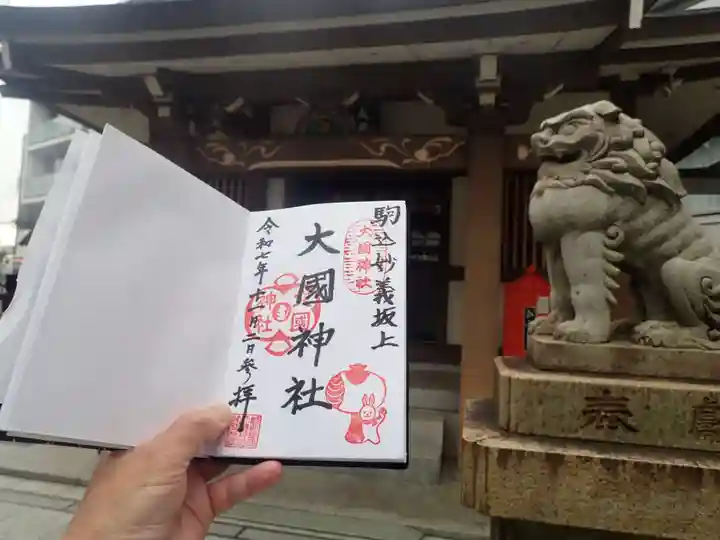 駒込妙義坂上
大國神社
大國神社
神社
國
令和七年十一月二日参拝
奉